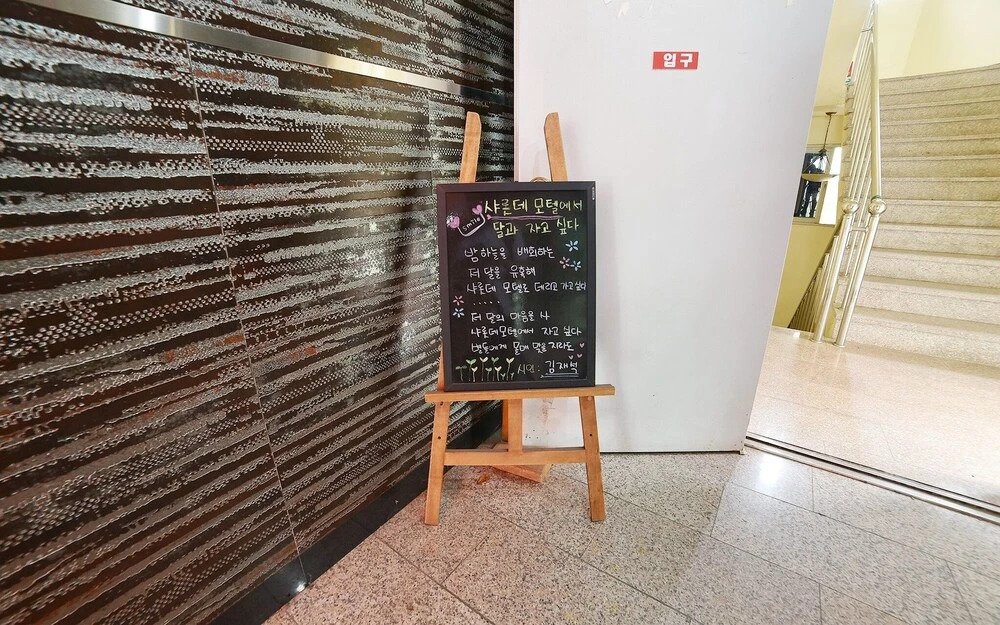 입구
smile
샤른데 모텔에서
달과 자고 싶다
밤하늘을 배회하는
저 달을 유혹해
샤른데 모텔로 데리고 가고 싶다
.....
저 달의 마음을 사
샤른데모텔에서 자고 싶다
별들에게 몰매 맞을지라도
시인 : 김재벽